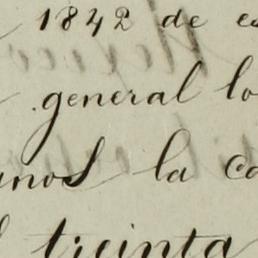 1842 de
general lo
la
treinta